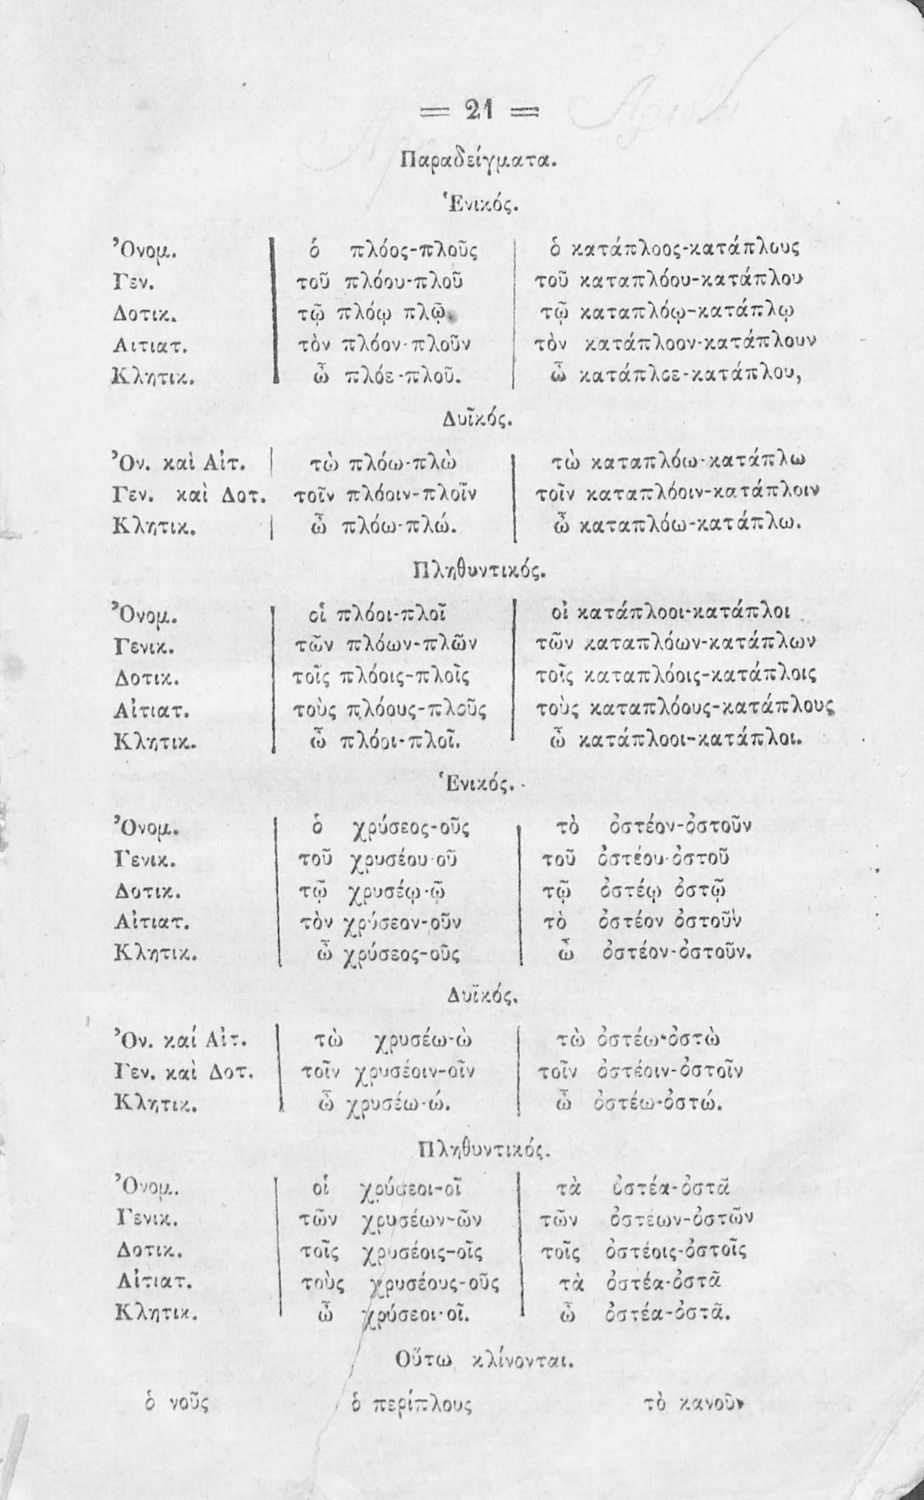 = 21 =
Παραδείγματα.
Ἑνικός.
Ὀνομ. ὁ πλόος-πλοῦς ὁ κατάπλοος-κατάπλους
Γεν. τοῦ πλόου-πλοῦ τοῦ καταπλόου-κατάπλου
Δοτικ. τῷ πλόῳ πλῷ τῷ καταπλόῳ-κατάπλῳ
Αιτιατ. τὸν πλόον-πλοῦν τὸν κατάπλοον-κατάπλουν
Κλητικ. ὦ πλόε-πλοῦ. ὦ κατάπλοε-κατάπλου,
Δυϊκός.
Ὀν. καὶ Αἰτ. τὼ πλόω-πλὼ τὼ καταπλόω-κατάπλω
Γεν. καὶ Δοτ. τοῖν πλόοιν-πλοῖν τοῖν καταπλόοιν-κατάπλοιν
Κλητικ. ὦ πλόω-πλώ. ὦ καταπλόω-κατάπλω.
Πληθυντικός.
Ὀνομ. οἱ πλόοι-πλοῖ οἱ κατάπλοοι-κατάπλοι
Γενικ. τῶν πλόων-πλῶν τῶν καταπλόων-κατάπλων
Δοτικ. τοῖς πλόοις-πλοῖς τοῖς καταπλόοις-κατάπλοις
Αἰτιατ. τοὺς πλόους-πλοῦς τοὺς καταπλόους-κατάπλους
Κλητικ. ὦ πλόοι-πλοῖ. ὦ κατάπλοοι-κατάπλοι.
Ἑνικός.
Ὀνομ. ὁ χρύσεος-οῦς τὸ ὀστέον-ὀστοῦν
Γενικ. τοῦ χρυσέου-οῦ τοῦ ὀστέου-ὀστοῦ
Δοτικ. τῷ χρυσέῳ-ῷ τῷ ὀστέῳ ὀστῷ
Αἰτιατ. τὸν χρύσεον-οῦν τὸ ὀστέον ὀστοῦν
Κλητικ. ὦ χρύσεος-οῦς ὦ ὀστέον-ὀστοῦν.
Δυϊκός.
Ὀν. καί Αἰτ. τὼ χρυσέω-ὼ τὼ ὀστέω-ὀστὼ
Γεν. καὶ Δοτ. τοῖν χρυσέοιν-οῖν τοῖν ὀστέοιν-ὀστοῖν
Κλητικ. ὦ χρυσέω-ώ. ὦ ὀστέω-ὀστώ.
Πληθυντικός.
Ὀνομ. οἱ χρύσεοι-οῖ τὰ ὀστέα-ὀστᾶ
Γενικ. τῶν χρυσέων-ῶν τῶν ὀστέων-ὀστῶν
Δοτικ. τοῖς χρυσέοις-οῖς τοῖς ὀστέοις-ὀστοῖς
Αἰτιατ. τοὺς χρυσέους-οῦς τὰ ὀστέα-ὀστᾶ
Κλητικ. ὦ χρύσεοι-οῖ. ὦ ὀστέα-ὀστᾶ.
Οὕτω κλίνονται.
ὁ νοῦς ὁ περίπλους τὸ κανοῦν